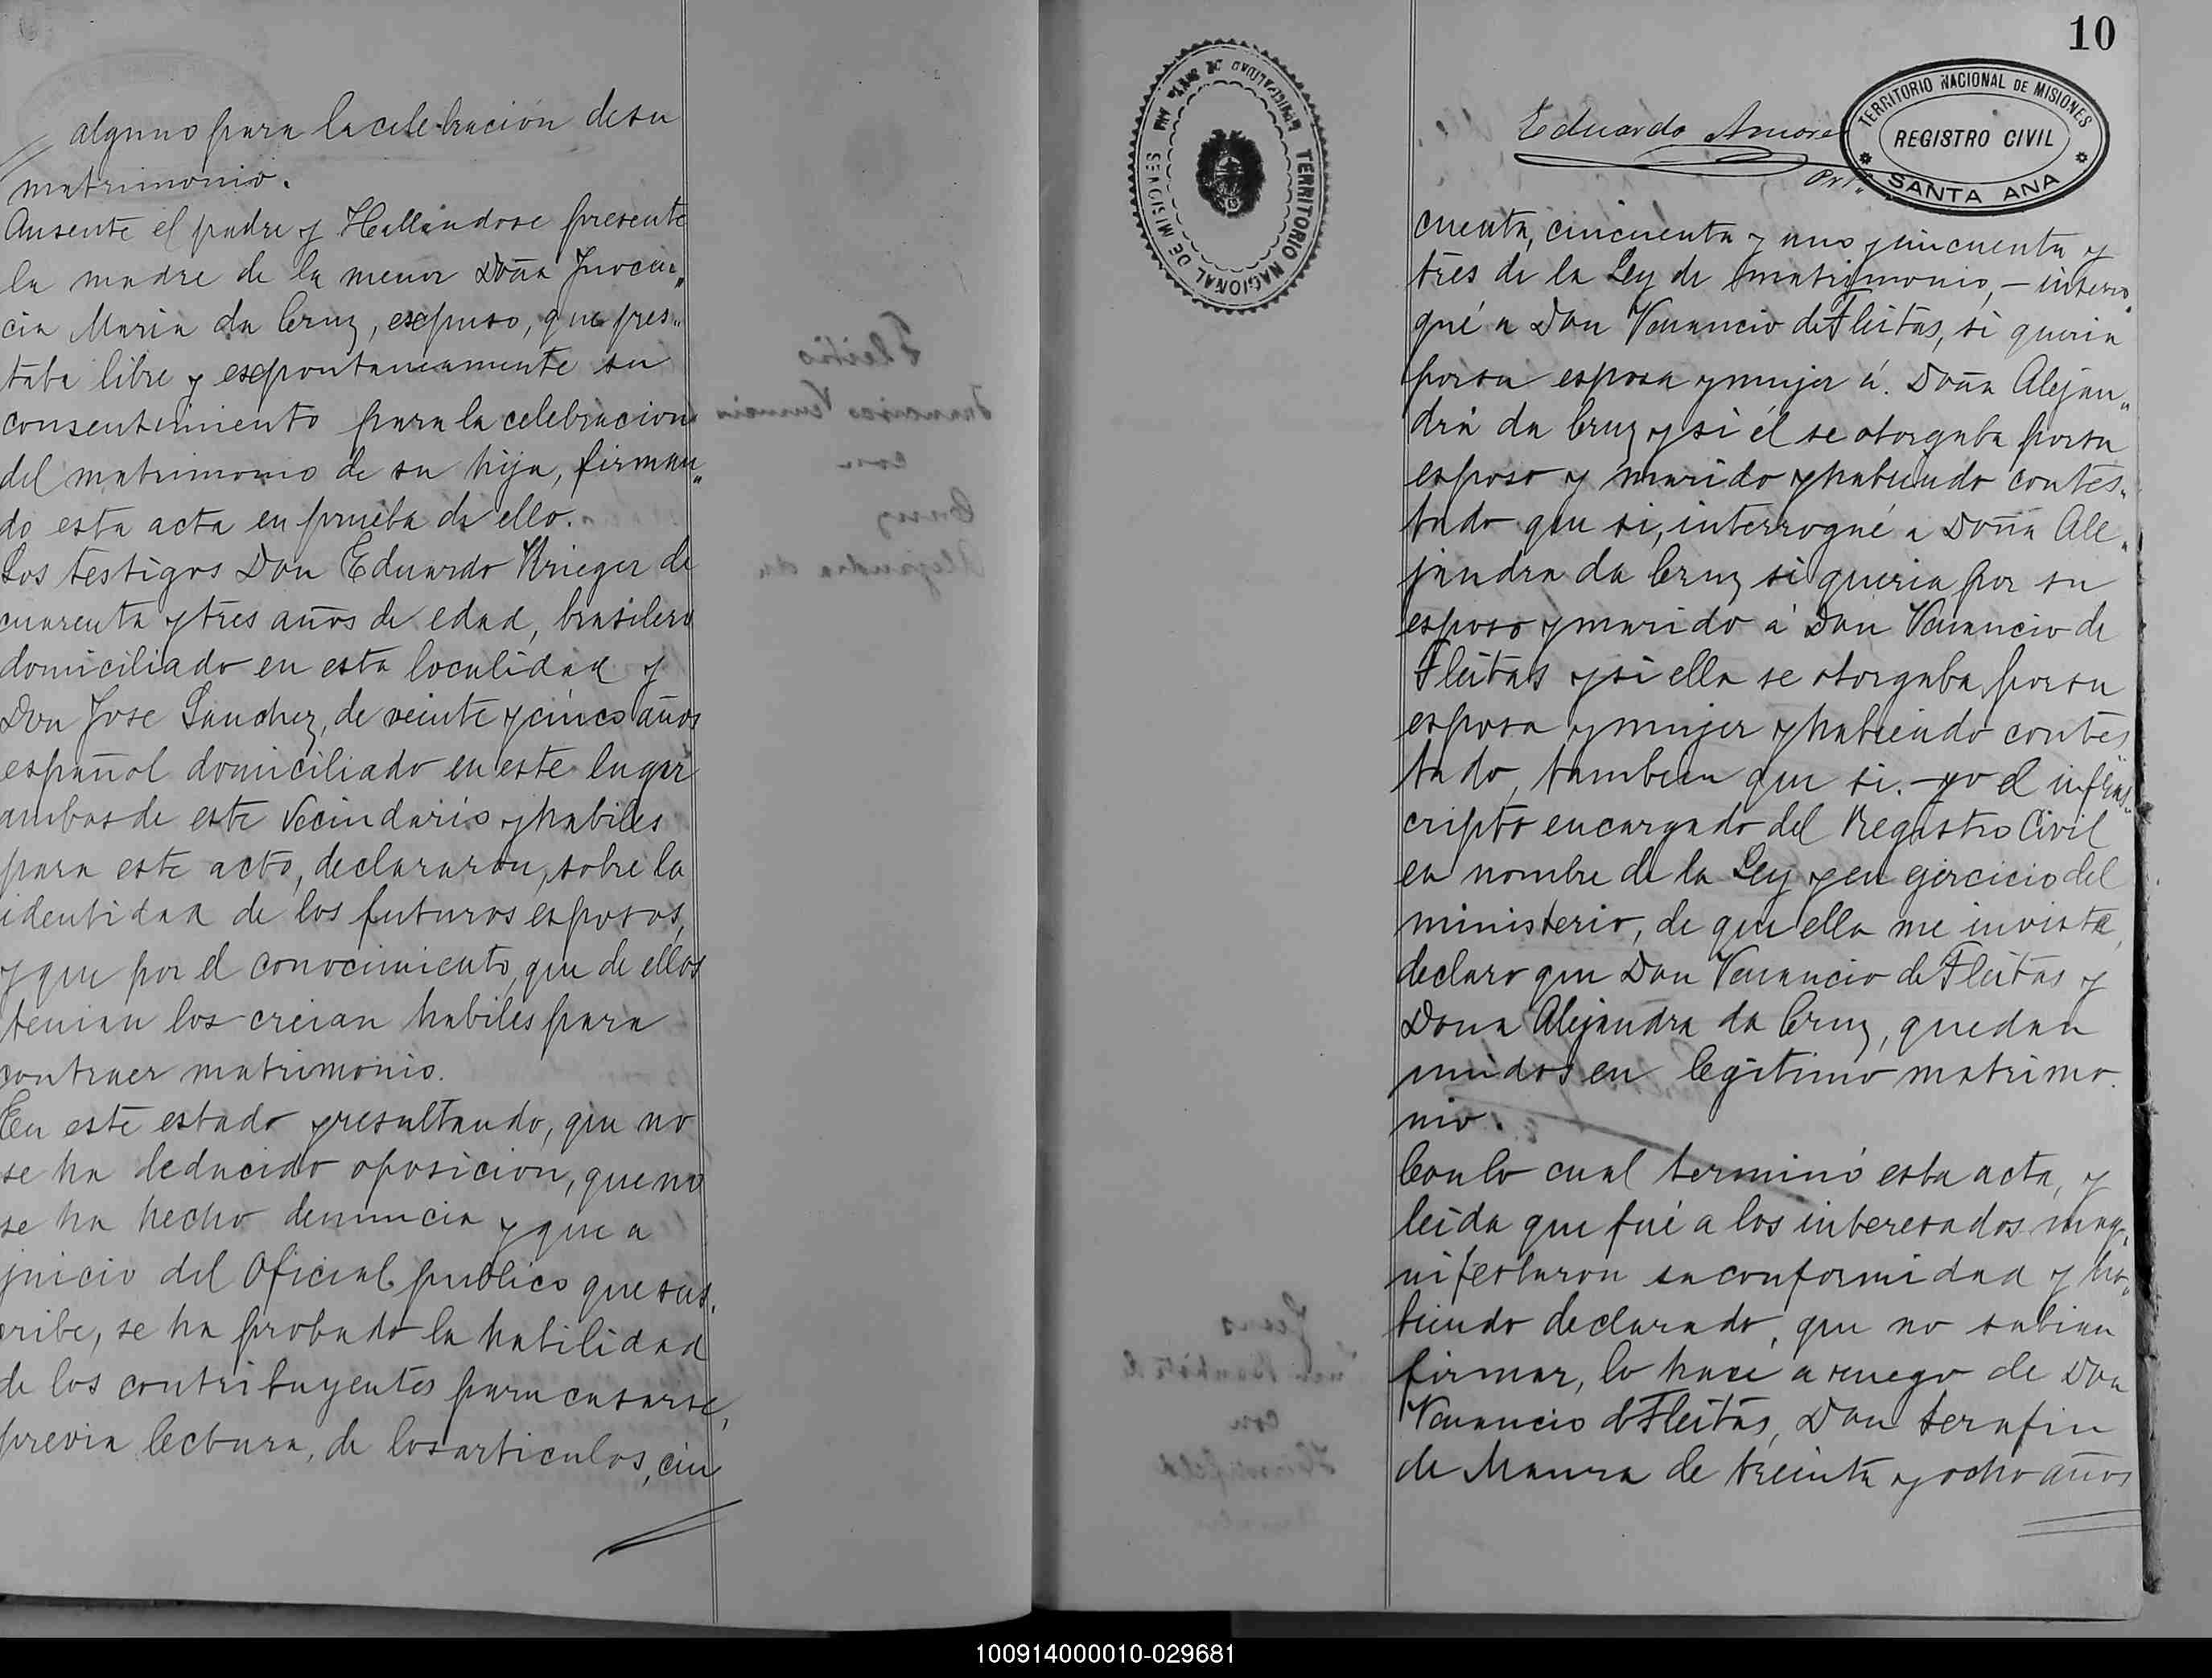 alguno para la celebración de su
matrimonio.
Ausente el padre y Hallándose presente
la madre de la menor Doña Inocen„
cia Maria da Cruz, expuso, que pres„
taba libre y expontaneamente su
consentimiento para la celebracion
del matrimonio de su hija, firman„
do esta acta en prueba de ello.
Los testigos Don Eduardo Krieger de
cuarenta y tres años de edad, brasilero
domiciliado en esta localidad y
Don Jose Sanchez, de veinte y cinco años
español domiciliado en este lugar
ambos de este vecindario y habiles
para este acto, declararon, sobre la
identidad de los futuros esposos,
y que por el conocimiento, que de ellos
tenian los creian habiles para
contraer matrimonio.
En este estado y resultando, que no
se ha deducido oposicion, que no
se ha hecho denuncia y que a
juicio del Oficial publico que sus„
cribe, se ha probado la habilidad
de los contribuyentes para casarse,
previa lectura, de los articulos, cin
10
Eduardo
TERRITORIO NACIONAL DE MISIONES
REGISTRO CIVIL
SANTA ANA
TERRITORIO NACIONAL DE MISIONES
cuenta, cincuenta y uno y cincuenta y
tres de la Ley de matrimonio, – interro„
gué a Don Venancio de Fleitas, si queria
por su esposa y mujer á Doña Alejan„
dra da Cruz y si él se otorgaba por su
esposo y marido y habiendo contes„
tado que si, interrogué a Doña Ale„
jandra da Cruz si queria por su
esposo y marido á Don Venancio de
Fleitas y si ella se otorgaba por su
esposa y mujer y habiendo contes
tado, tambien que si. – yo el infras„
cripto encargado del Registro Civil
en nombre de la Ley y en ejercicio del
ministerio, de que ella me inviste,
declaro que Don Venancio de Fleitas y
Dona Alejandra da Cruz, quedan
unidos en legitimo matrimo
nio.
Con lo cual terminó esta acta, y
leida que fué a los interesados ma„
nifestaron su conformidad y ha„
biendo declarado, que no sabian
firmar, lo hace a ruego de Don
Venancio de Fleitas, Don Serafin
de Maura de treinta y ocho años
100914000010-029681